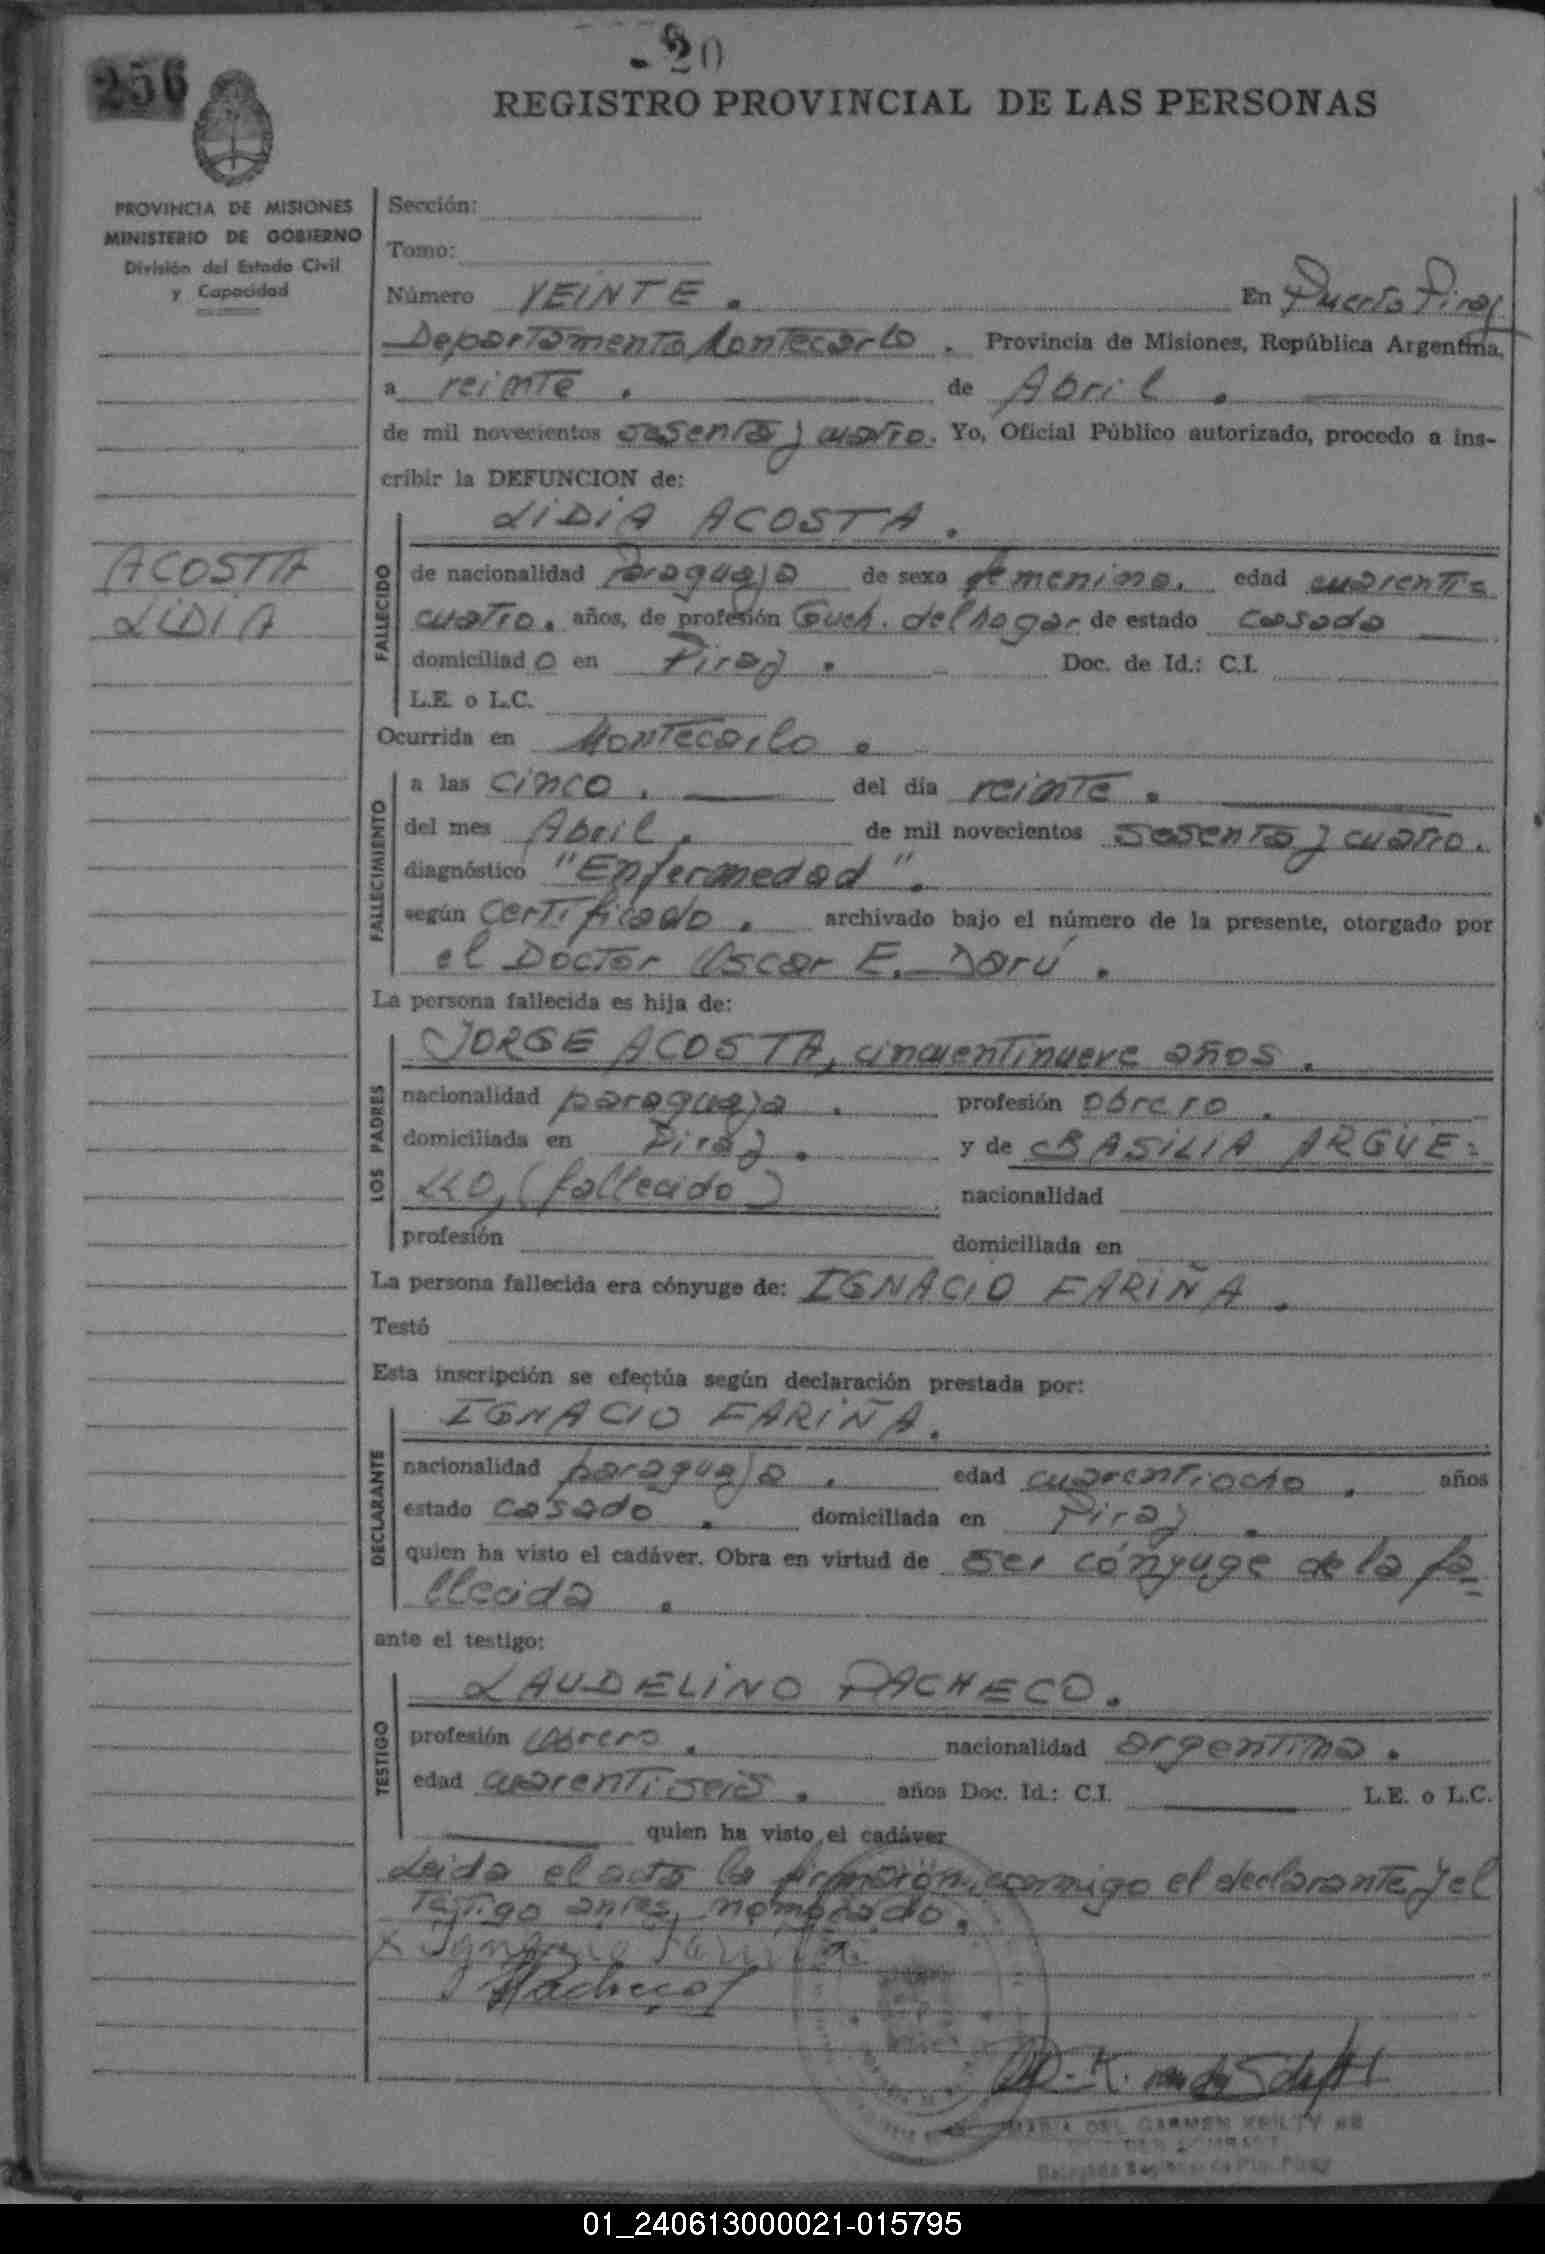 20
256
REGISTRO PROVINCIAL DE LAS PERSONAS
PROVINCIA DE MISIONES
MINISTERIO DE GOBIERNO
División del Estado Civil
y Capacidad
Sección:
Tomo:
Número VEINTE. En Puerto Piray
Departamento Montecarlo. Provincia de Misiones, República Argentina,
a veinte. de Abril.
de mil novecientos sesenta y cuatro. Yo, Oficial Público autorizado, procedo a ins-
cribir la DEFUNCION de:
LIDIA ACOSTA.
ACOSTA
LIDIA
FALLECIDO
de nacionalidad Paraguaya de sexo femenino. edad cuarenta
cuatro. años, de profesión Queh. del hogar de estado casada
domiciliado en Piray. Doc. de Id.: C.I.
L.E. o L.C.
Ocurrida en Montecarlo.
FALLECIMIENTO
a las cinco. del día veinte.
del mes Abril. de mil novecientos sesenta y cuatro.
diagnóstico "Enfermedad".
según certificado. archivado bajo el número de la presente, otorgado por
el Doctor Oscar E. Darú.
La persona fallecida es hija de:
LOS PADRES
JORGE ACOSTA, cincuentinueve años.
nacionalidad paraguaya. profesión obrero.
domiciliada en Piray. y de BASILIA ARGÜE=
LLO, (fallecido) nacionalidad
profesión domiciliada en
La persona fallecida era cónyuge de: IGNACIO FARIÑA.
Testó
Esta inscripción se efectúa según declaración prestada por:
DECLARANTE
IGNACIO FARIÑA.
nacionalidad paraguaya. edad cuarentiocho. años
estado casado. domiciliada en Piray.
quien ha visto el cadáver. Obra en virtud de ser cónyuge de la fa=
llecida.
ante el testigo:
TESTIGO
LAUDELINO PACHECO.
profesión obrero. nacionalidad argentina.
edad cuarentiseis. años Doc. Id.: C.I. L.E. o L.C.
quien ha visto el cadáver
Leida el acta la firmaron conmigo el declarante y el
testigo antes nombrado.
x Fariña
Pacheco
MARIA DEL CARMEN DE
Delegada Pto. Piray
01_240613000021-015795